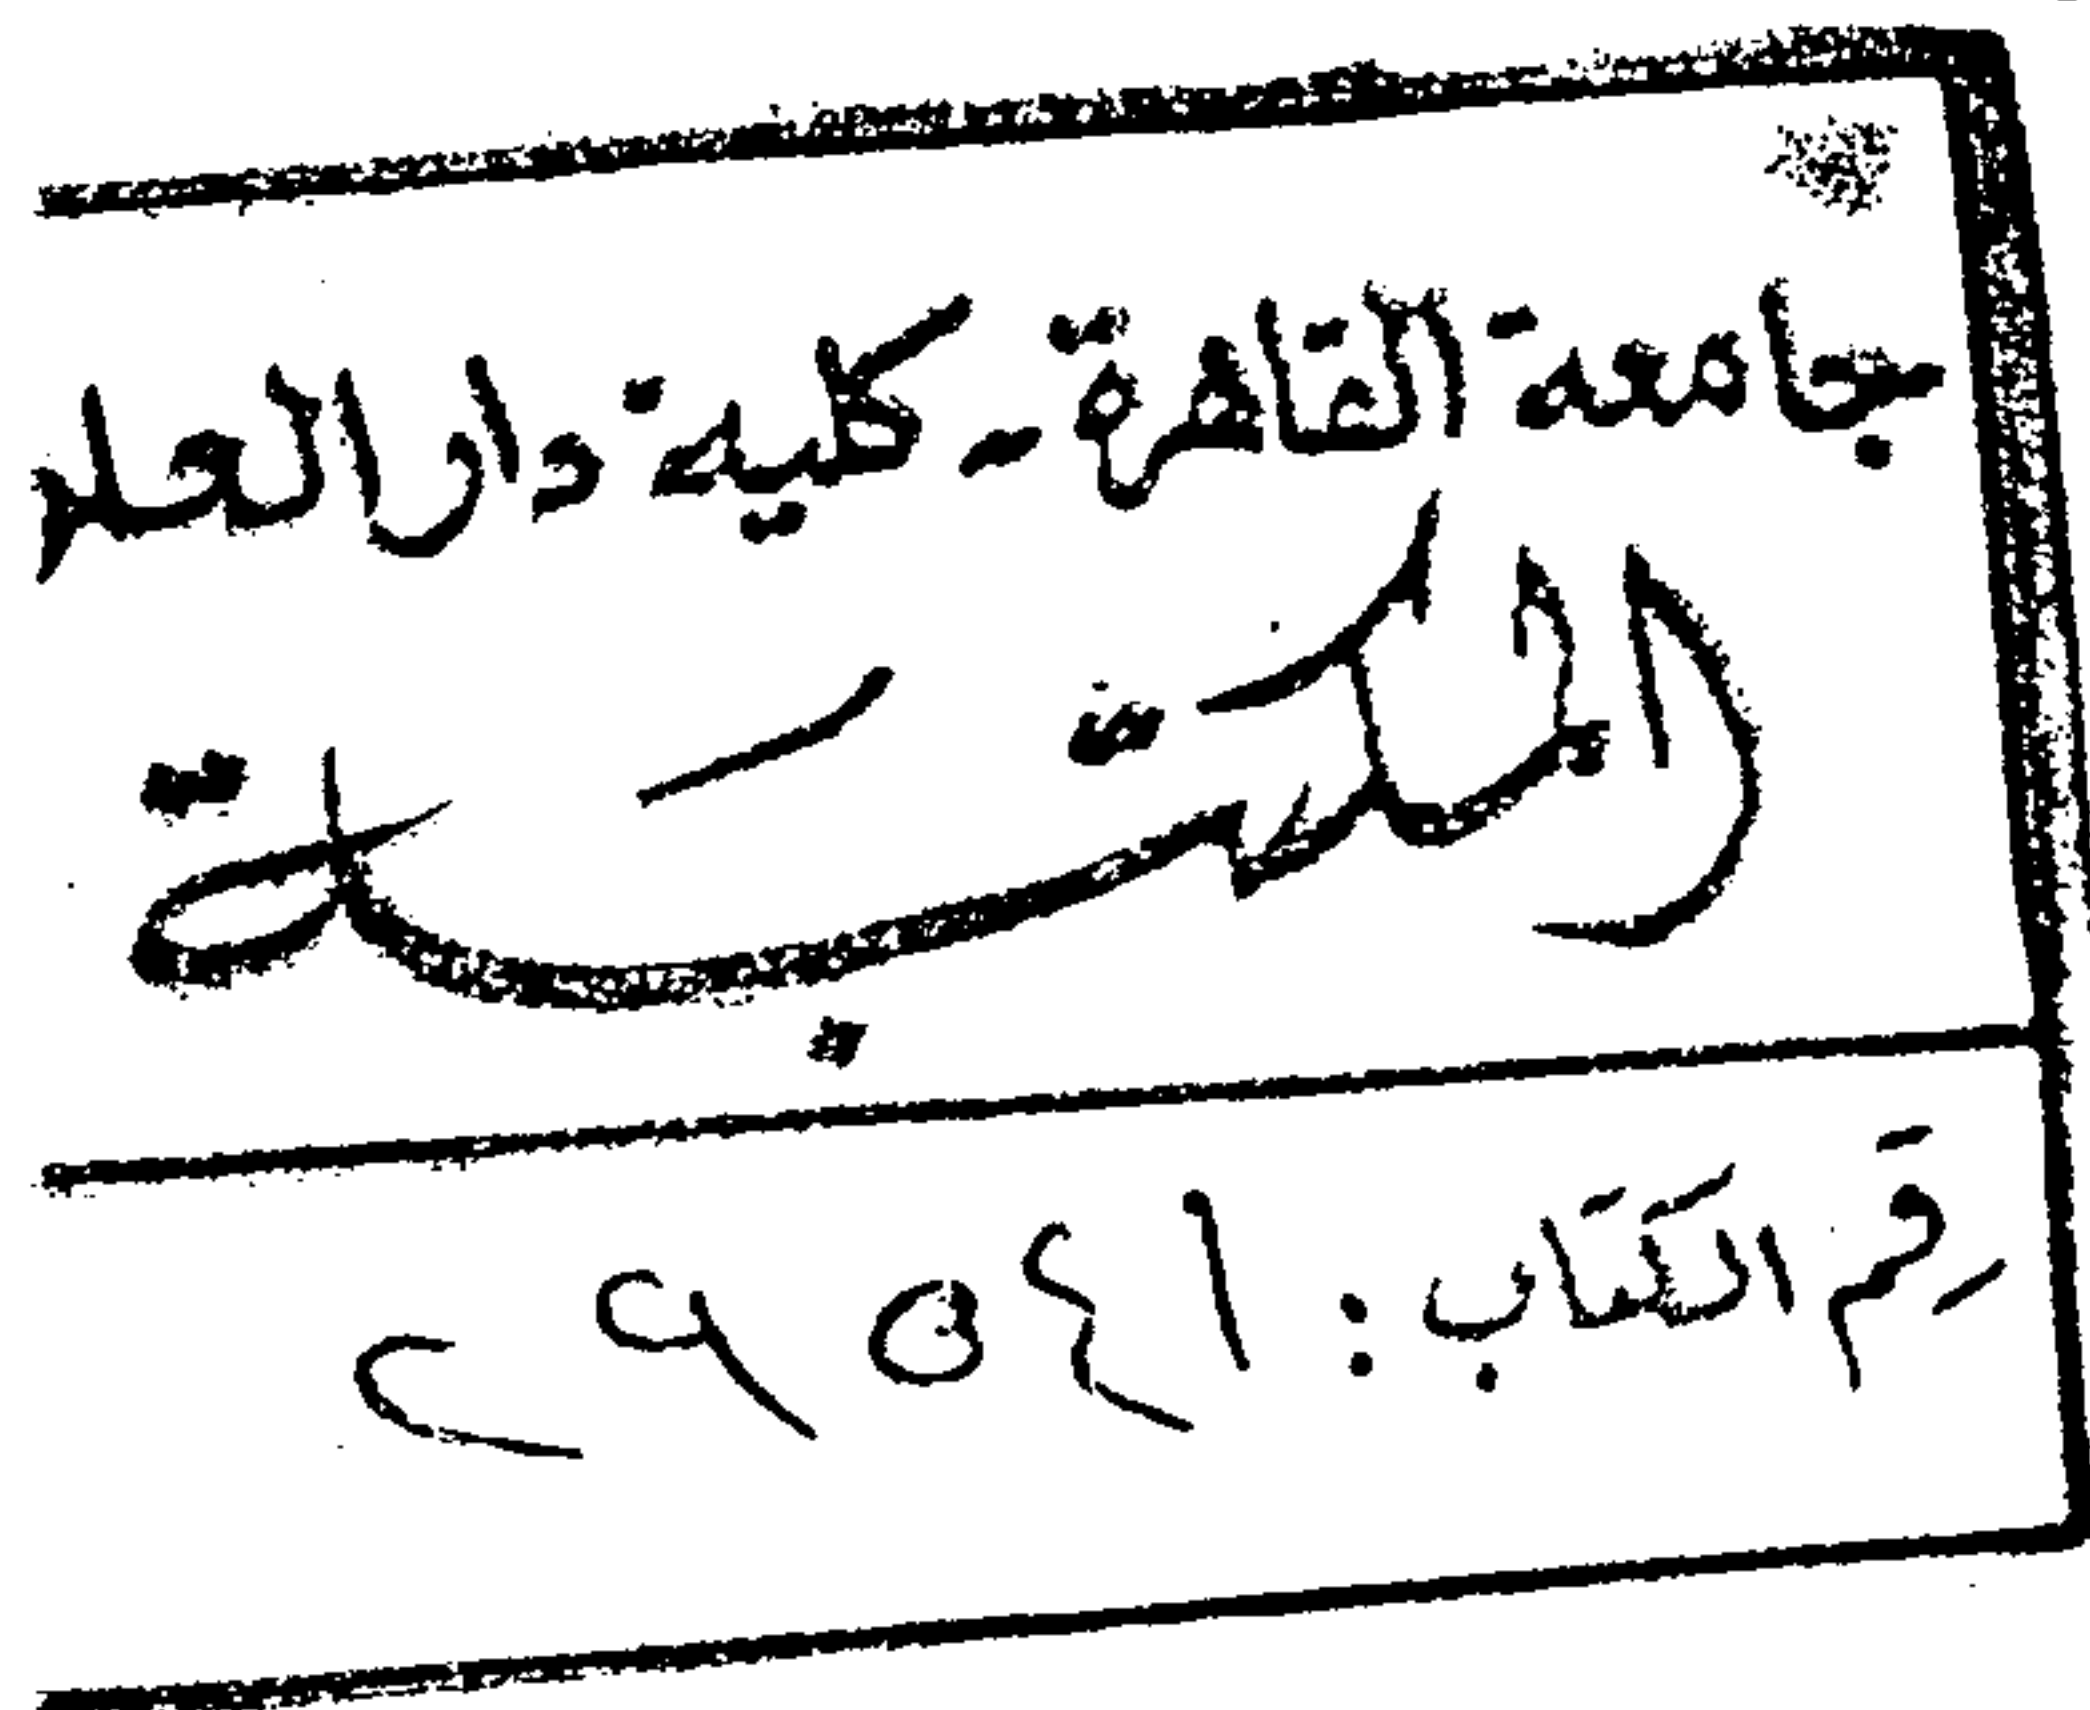 جامعة القاهرة - كلية دار العلو
المكتبة
رقم الكتاب : ١٤٥٩٢